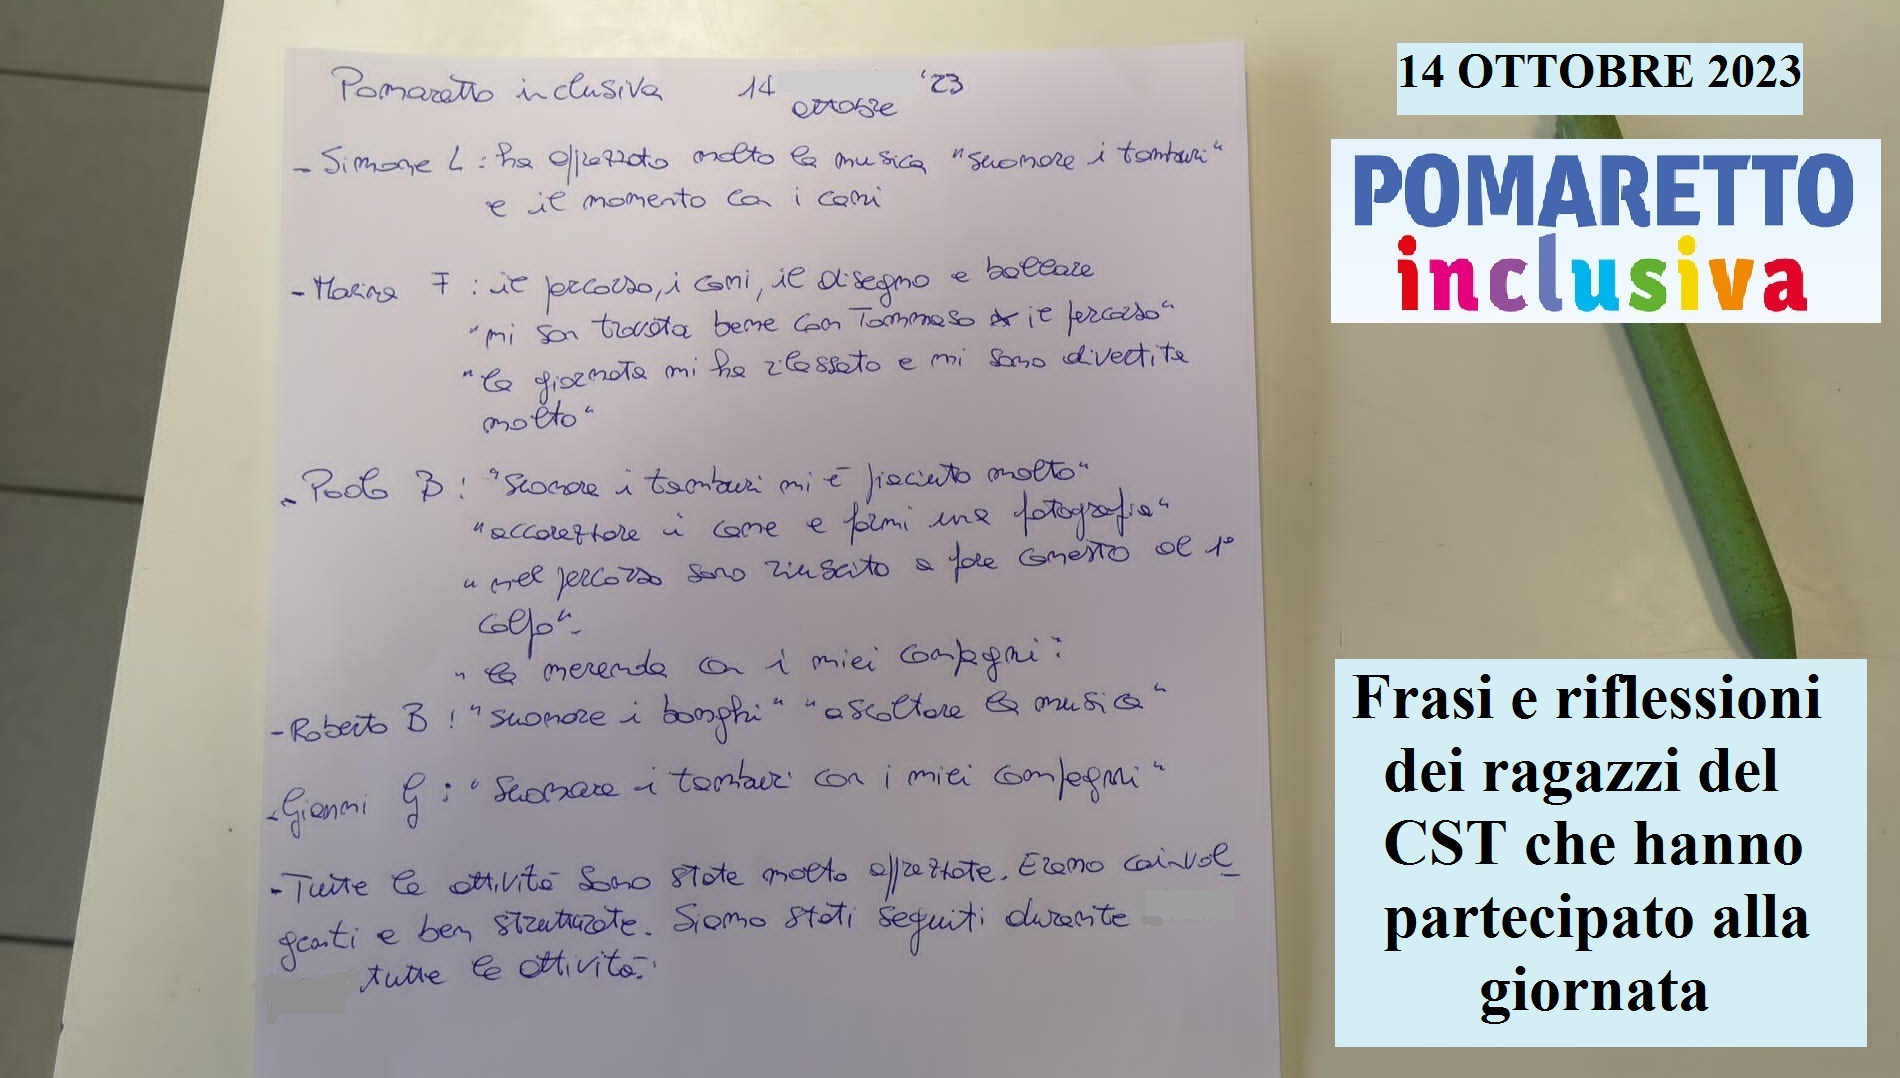 Pomaretto inclusiva 14 ottobre '23
- Simone L : ha apprezzato molto la musica "suonare i tamburi"
e il momento con i cani
- Marina F : il percorso, i cani, il disegno e ballare
"mi son trovata bene con Tommaso il percorso"
"la giornata mi ha rilassato e mi sono divertita
molto"
- Paolo B : "suonare i tamburi mi è piaciuto molto"
"accarezzare i cane e farmi una fotografia"
"nel percorso sono riuscito a fare canestro al 1°
colpo".
"la merenda con i miei compagni".
- Roberto B : "suonare i bonghi" "ascoltare la musica"
- Gianni G : "suonare i tamburi con i miei compagni"
- Tutte le attività sono state molto apprezzate. Erano coinvol_
genti e ben strutturate. Siamo stati seguiti durante
tutte le attività.
14 OTTOBRE 2023
POMARETTO
inclusiva
Frasi e riflessioni
dei ragazzi del
CST che hanno
partecipato alla
giornata